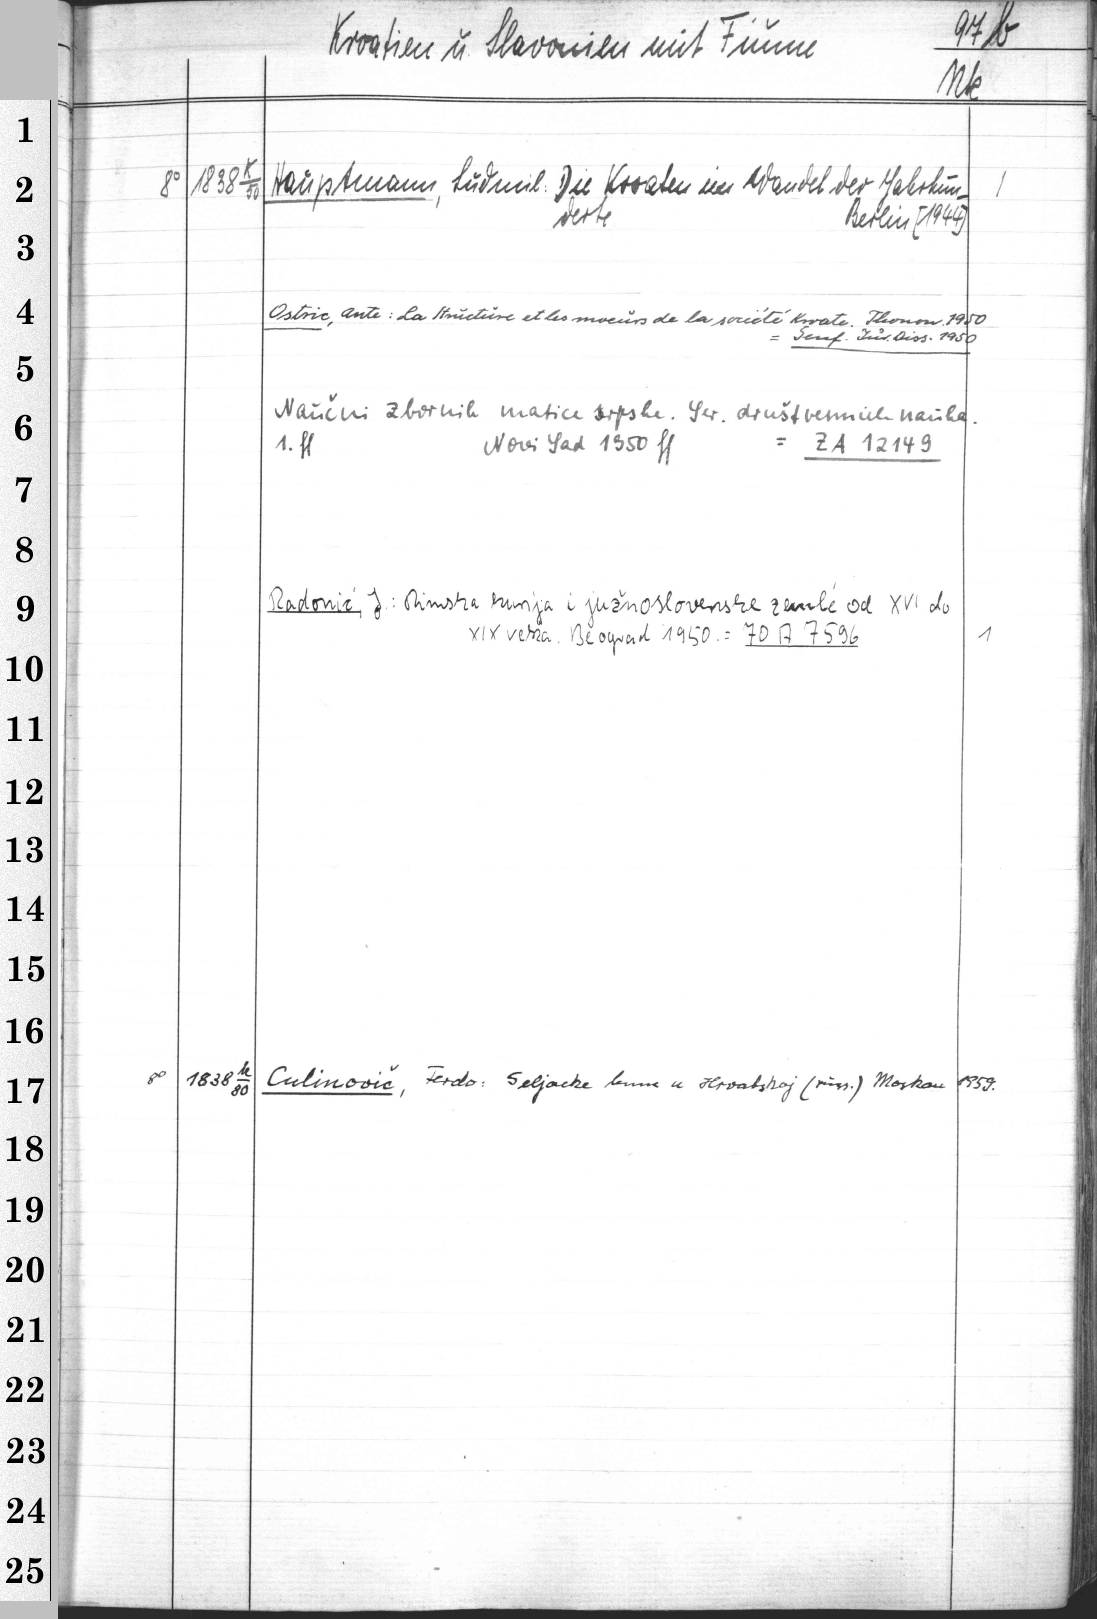 Kroatien u. Slavonien mit Fiume
97/b
Nk
1
2
3
4
5
6
7
8
9
10
11
12
13
14
15
16
17
18
19
20
21
22
23
24
25
8° 1838 K/50 Hauptmann, Ludmil: Die Kroaten im Wandel der Jahrhun- 1
derte Berlin [1944]
Ostric, Ante: La structure et les moeurs de la société kroate. Thonon 1950
= Genf. Jur. Diss. 1950
Naučni zbornik matice srpske. Ser. društvennich nauka.
1. ff Novi Sad 1950 ff = ZA 12149
Radonić, J.: Rimska kurija i južnoslovenske zemlé od XVI do
XIX veka. Beograd 1950. = 70 A 7596 1
8° 1838 k/80 Culinovič, Ferdo: Seljacke bune u Hrvatskoj (russ.) Moskau 1959.